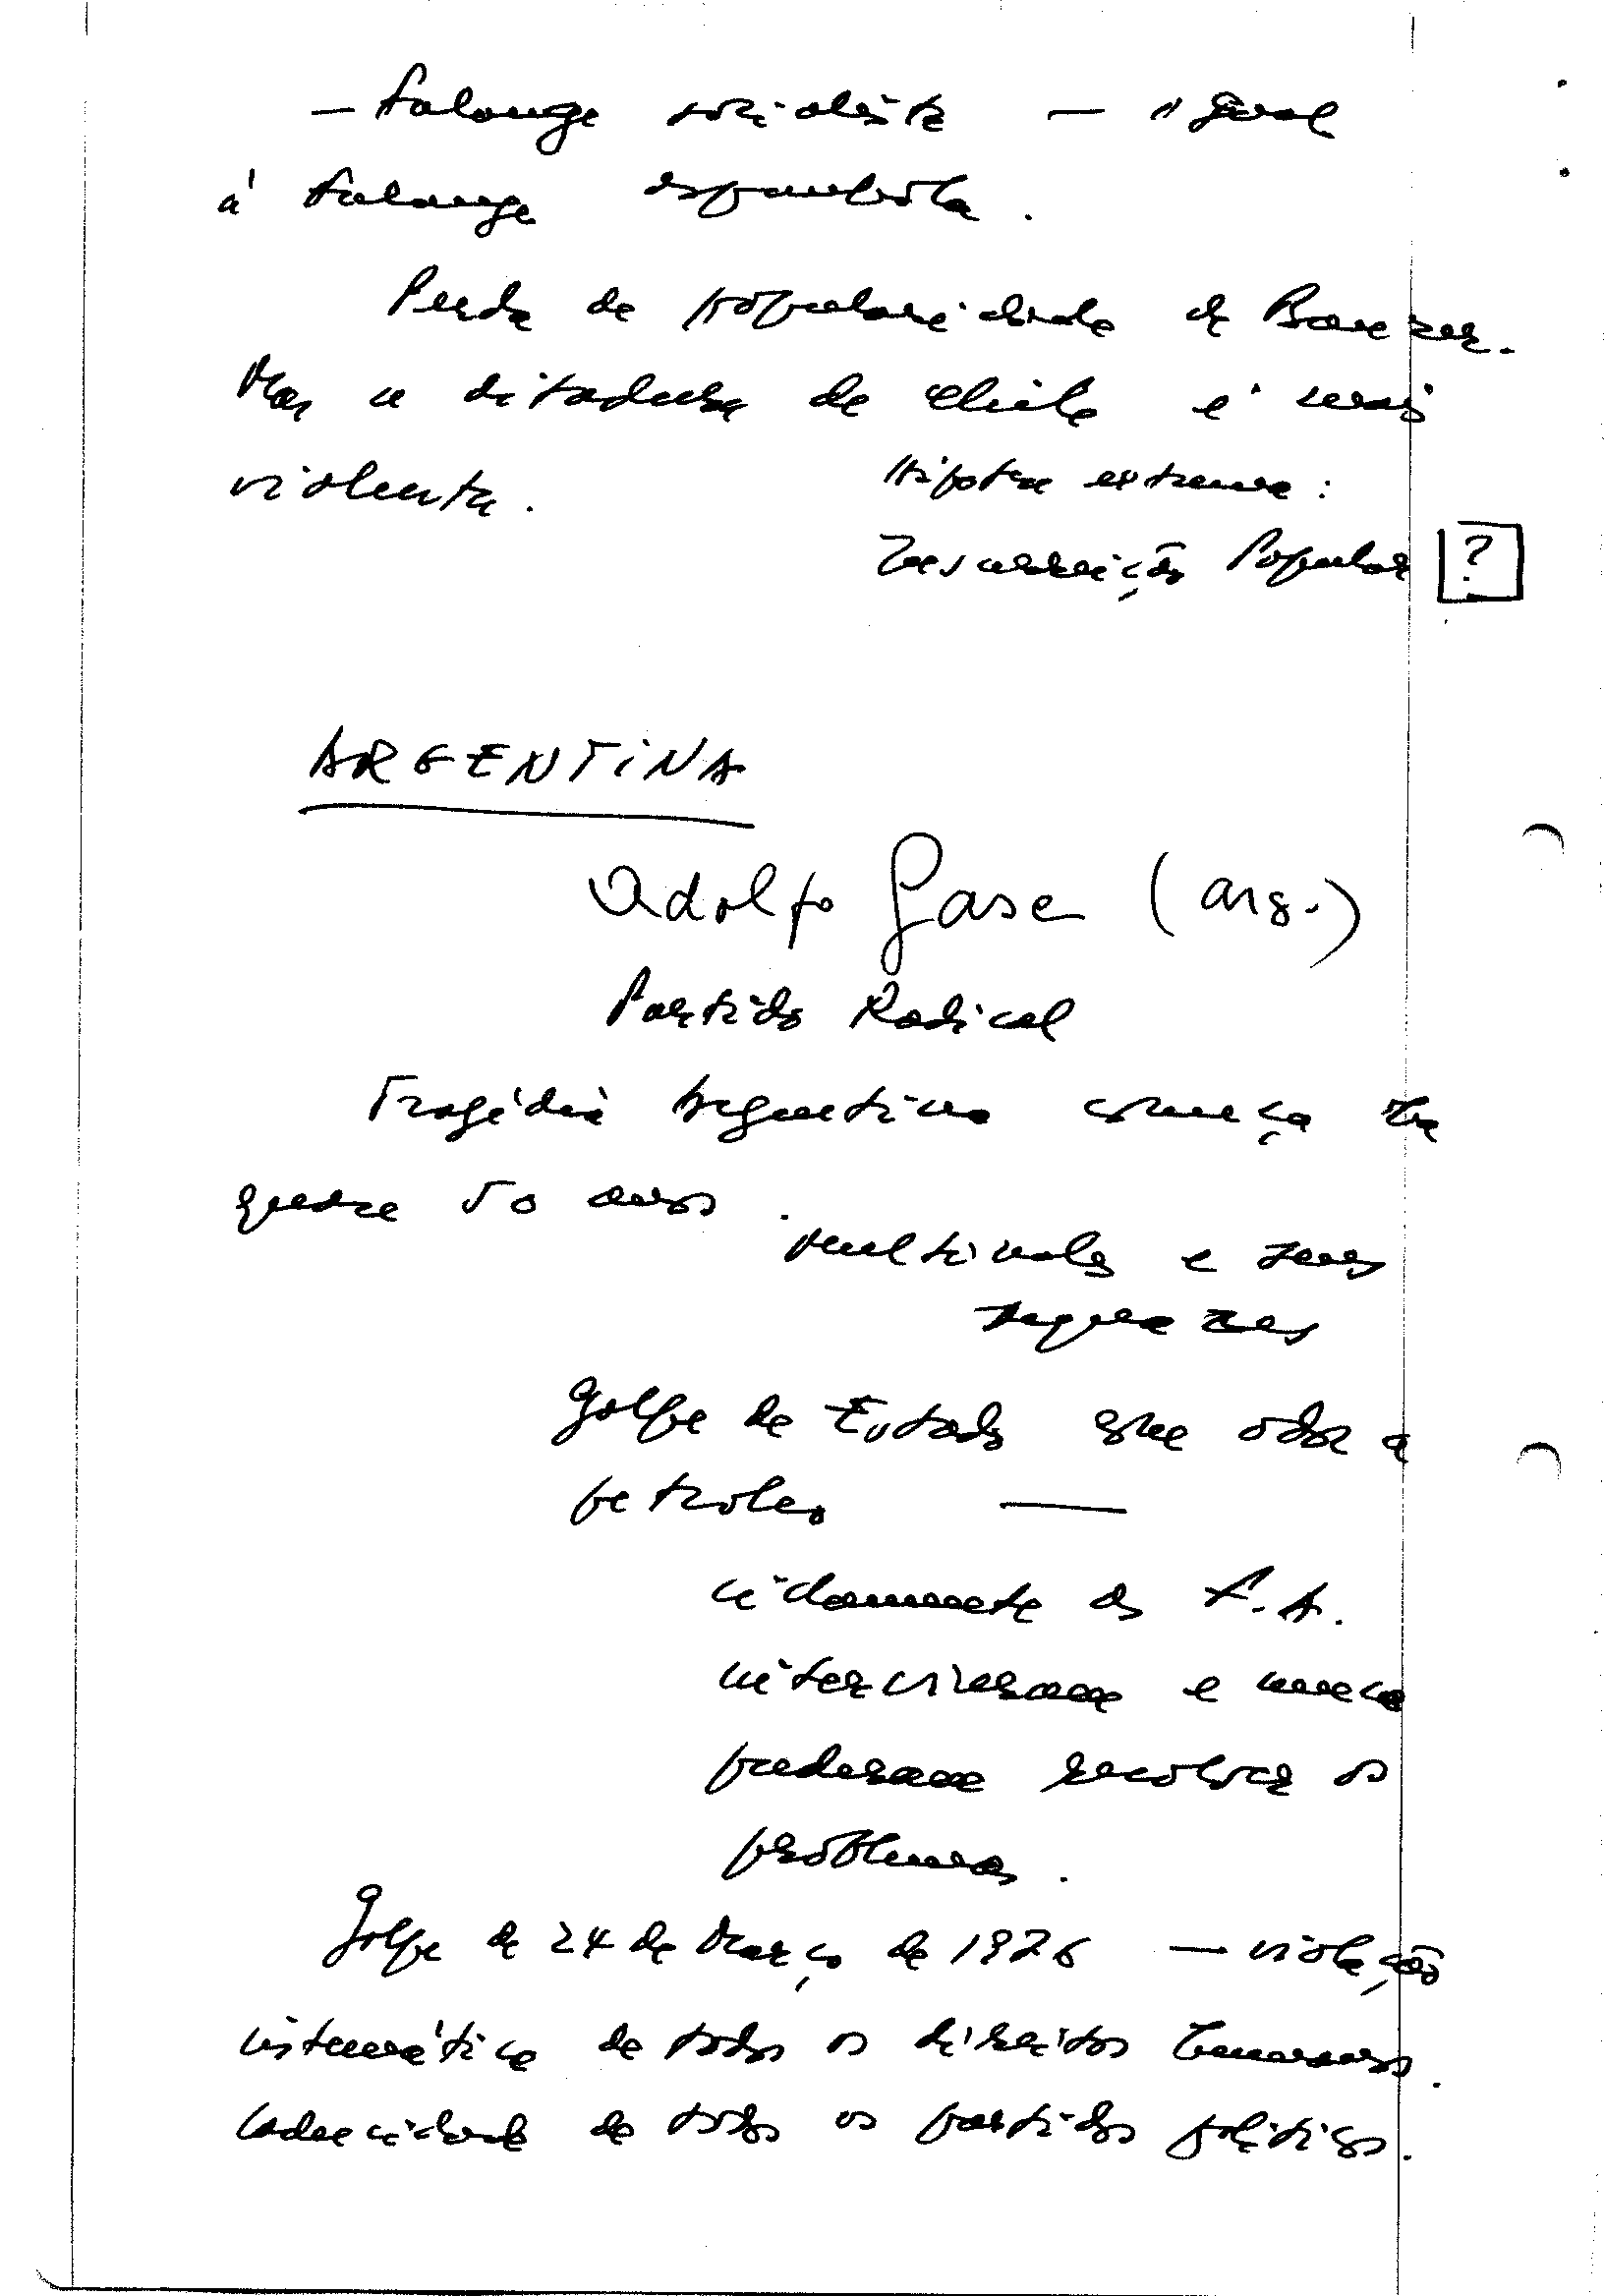 — Falange socialista — igual
à falange espanhola.
Perda de popularidade de Banzer.
Mas a ditadura do Chile é mais
violenta.
Hipótese extrema:
Insurreição Popular ?
ARGENTINA
Adolfo Gass (arg.)
Partido Radical
Tragédia Argentina começa há
quase 50 anos.
multinals e seus
Golpe de Estado que odor a
petroleo —
as F.A.
intervieram e nunca
puderam resolver os
problemas.
Golpe de 24 de Março de 1976 — violação
sistemática de todos os direitos humanos.
Caducidade de todos os partidos políticos.